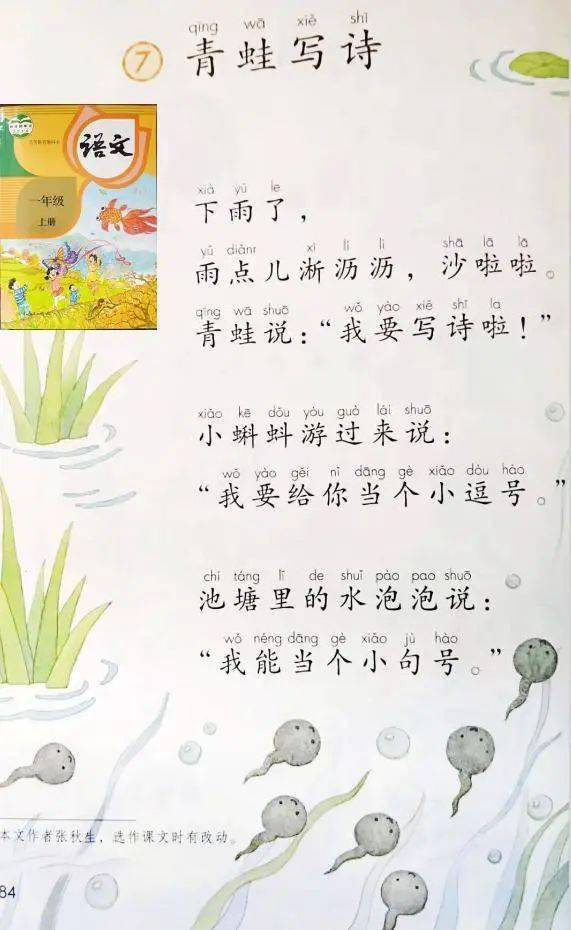 qīng wā xiě shī
7 青蛙写诗
语文
一年级
上册
xià yǔ le
下雨了，
yǔ diǎnr xī lì lì shā lā lā
雨点儿淅沥沥，沙啦啦。
qīng wā shuō wǒ yào xiě shī la
青蛙说：“我要写诗啦！”
xiǎo kē dǒu yóu guò lái shuō
小蝌蚪游过来说：
wǒ yào gěi nǐ dāng gè xiǎo dòu hào
“我要给你当个小逗号。”
chí táng lǐ de shuǐ pào pao shuō
池塘里的水泡泡说：
wǒ néng dāng gè xiǎo jù hào
“我能当个小句号。”
本文作者张秋生，选作课文时有改动。
84